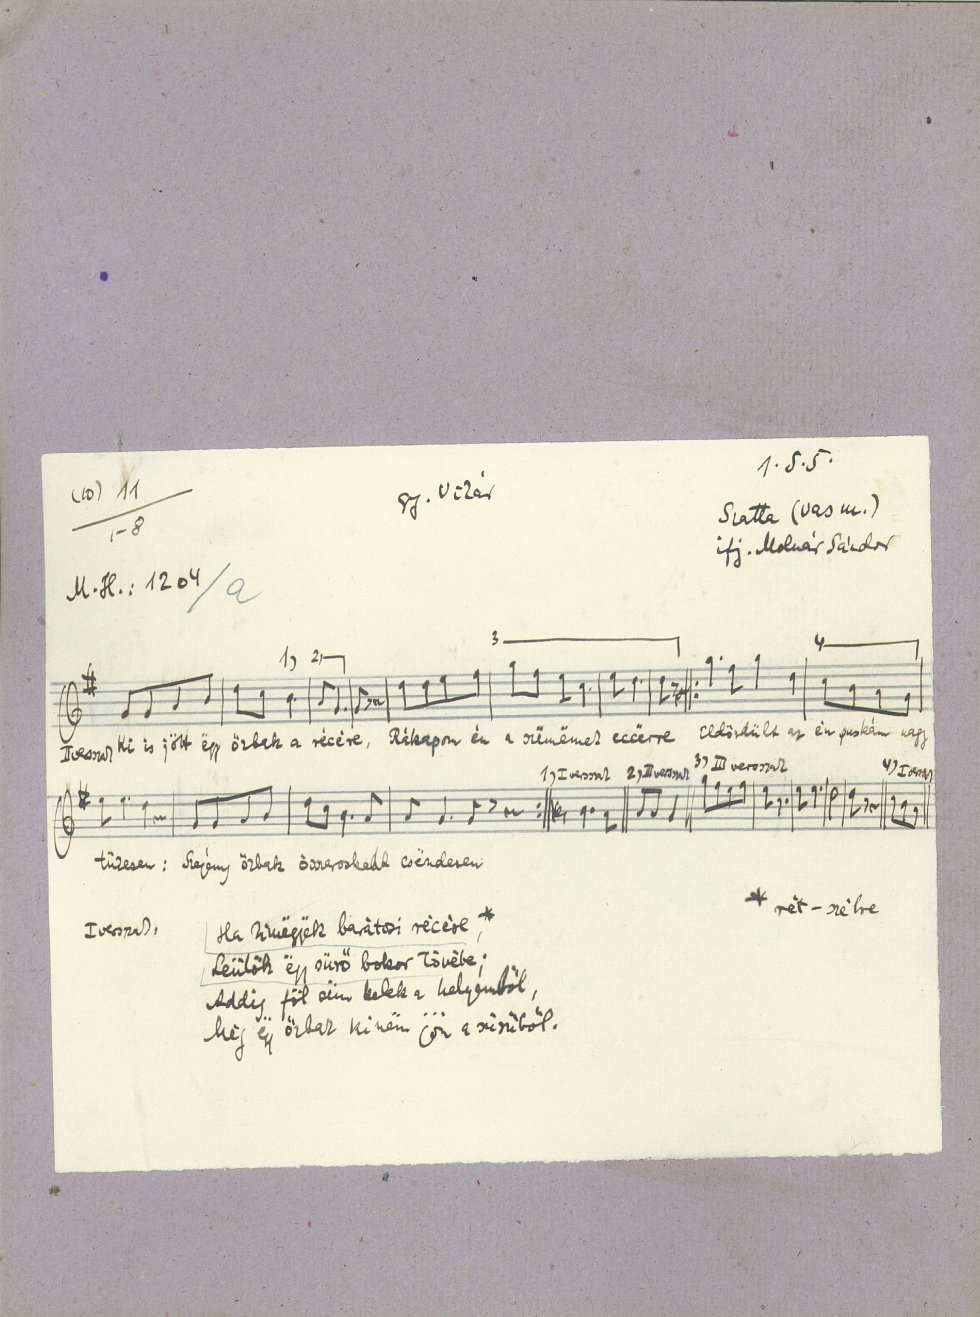 (10) 11
1-8
gy. Vikár
1.5.5.
Szatta (Vas m.)
ifj. Molnár Sándor
M.H.: 1204/a
1) 2) 3 4
II versszak Ki is jött ëgy őzbak a récére, Rákapom én a szëmëmet eccërre Eldördült az én puskám nagy
1) I versszak 2) II versszak 3) III versszak 4) I versszak
tüzesen: Szegény őzbak összeroskadt csëndesen
* rét-szélre
I versszak.
Ha kimëgyëk barátosi récére,*
Leülök ëgy sürő bokor tövébe;
Addig föl sëm kelek a helyemből,
Még ëgy őzbak ki nëm jön a sürüből.